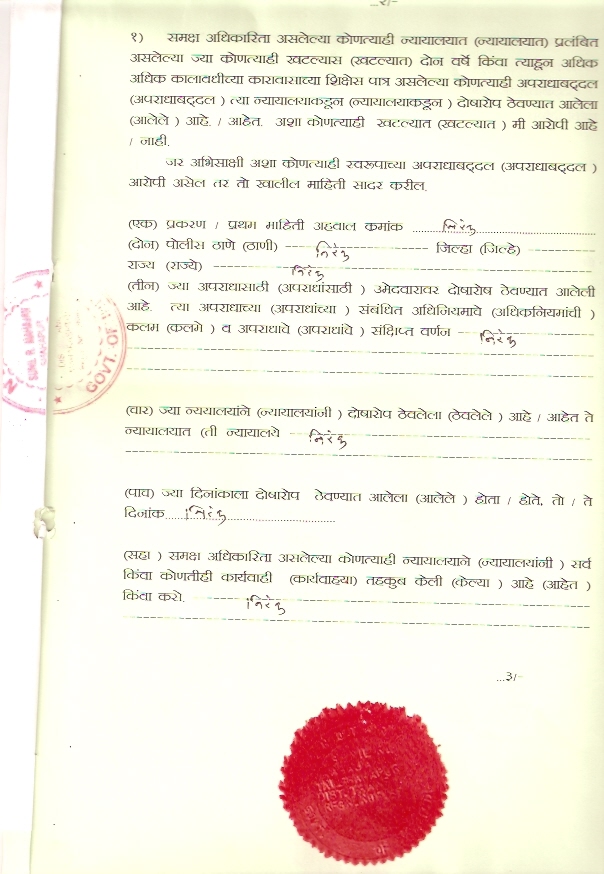 ...२/-
१) समक्ष अधिकारिता असलेल्या कोणत्याही न्यायालयात (न्यायालयात) प्रलंबित
असलेल्या ज्या कोणत्याही खटल्यास (खटल्यात) दोन वर्षे किंवा त्याहून अधिक
अधिक कालावधीच्या कारावासाच्या शिक्षेस पात्र असलेल्या कोणत्याही अपराधाबद्दल
(अपराधाबद्दल ) त्या न्यायालयाकडून (न्यायालयाकडून ) दोषारोप ठेवण्यात आलेला
(आलेले ) आहे. / आहेत. अशा कोणत्याही खटल्यात (खटल्यात ) मी आरोपी आहे
/ नाही.
जर अभिसाक्षी अशा कोणत्याही स्वरूपाच्या अपराधाबद्दल (अपराधाबद्दल )
आरोपी असेल तर तो खालील माहिती सादर करील.
(एक) प्रकरण / प्रथम माहिती अहवाल कमांक निरंक
(दोन) पोलीस ठाणे (ठाणी) निरंक जिल्हा (जिल्हे)
राज्य (राज्ये) निरंक
(तीन) ज्या अपराधासाठी (अपराधांसाठी ) उमेदवारावर दोषारोष ठेवण्यात आलेली
आहे. त्या अपराधाच्या (अपराधांच्या ) संबंधित अधिनियमावे (अधिकनियमांवी )
कलम (कलमे ) व अपराधावे (अपराधांवे ) संक्षिप्त वर्णज निरंक
(चार) ज्या न्ययालयांने (न्यायालयांनी ) दोषारोप ठेवलेला (ठेवलेले ) आहे / आहेत ते
न्यायालयात (ती न्यायालये निरंक
(पाच) ज्या दिनांकाला दोषारोप ठेवण्यात आलेला (आलेले ) होता / होते, तो / ते
दिनांक निरंक
(सहा ) समक्ष अधिकारिता असलेल्या कोणत्याही न्यायालयाने (न्यायालयांनी ) सर्व
किंवा कोणतीही कार्यवाही (कार्यवाहया) तहकुब केली (केल्या ) आहे (आहेत )
किंवा करो. निरंक
...३/-
GOVT. OF